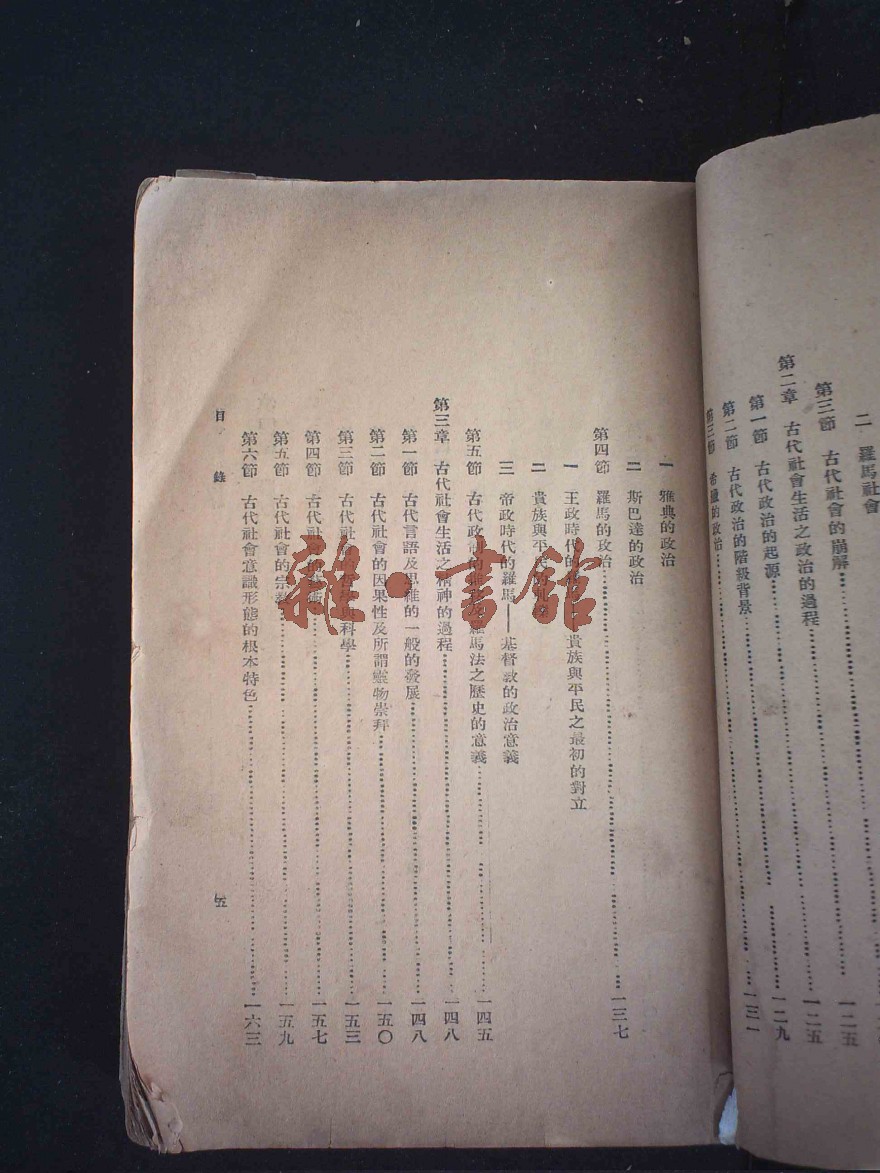 二 羅馬社會
第三節 古代社會的崩解………一二五
第二章 古代社會生活之政治的過程………一二五
第一節 古代政治的起源………一二九
第二節 古代政治的階級背景………一三一
第三節 希臘的政治………
一 雅典的政治
二 斯巴達的政治
第四節 羅馬的政治………一三七
一 王政時代的 貴族與平民之最初的對立
二 貴族與平民的
三 帝政時代的羅馬——基督教的政治意義
第五節 古代政治的 羅馬法之歷史的意義………一四五
第三章 古代社會生活之精神的過程………一四八
第一節 古代言語及思維的一般的發展………一四八
第二節 古代社會的因果性及所謂靈物崇拜………一五〇
第三節 古代社會的哲學與科學………一五三
第四節 古代社會的藝術………一五七
第五節 古代社會的宗教………一五九
第六節 古代社會意識形態的根本特色………一六三
目錄
五
雜·書館